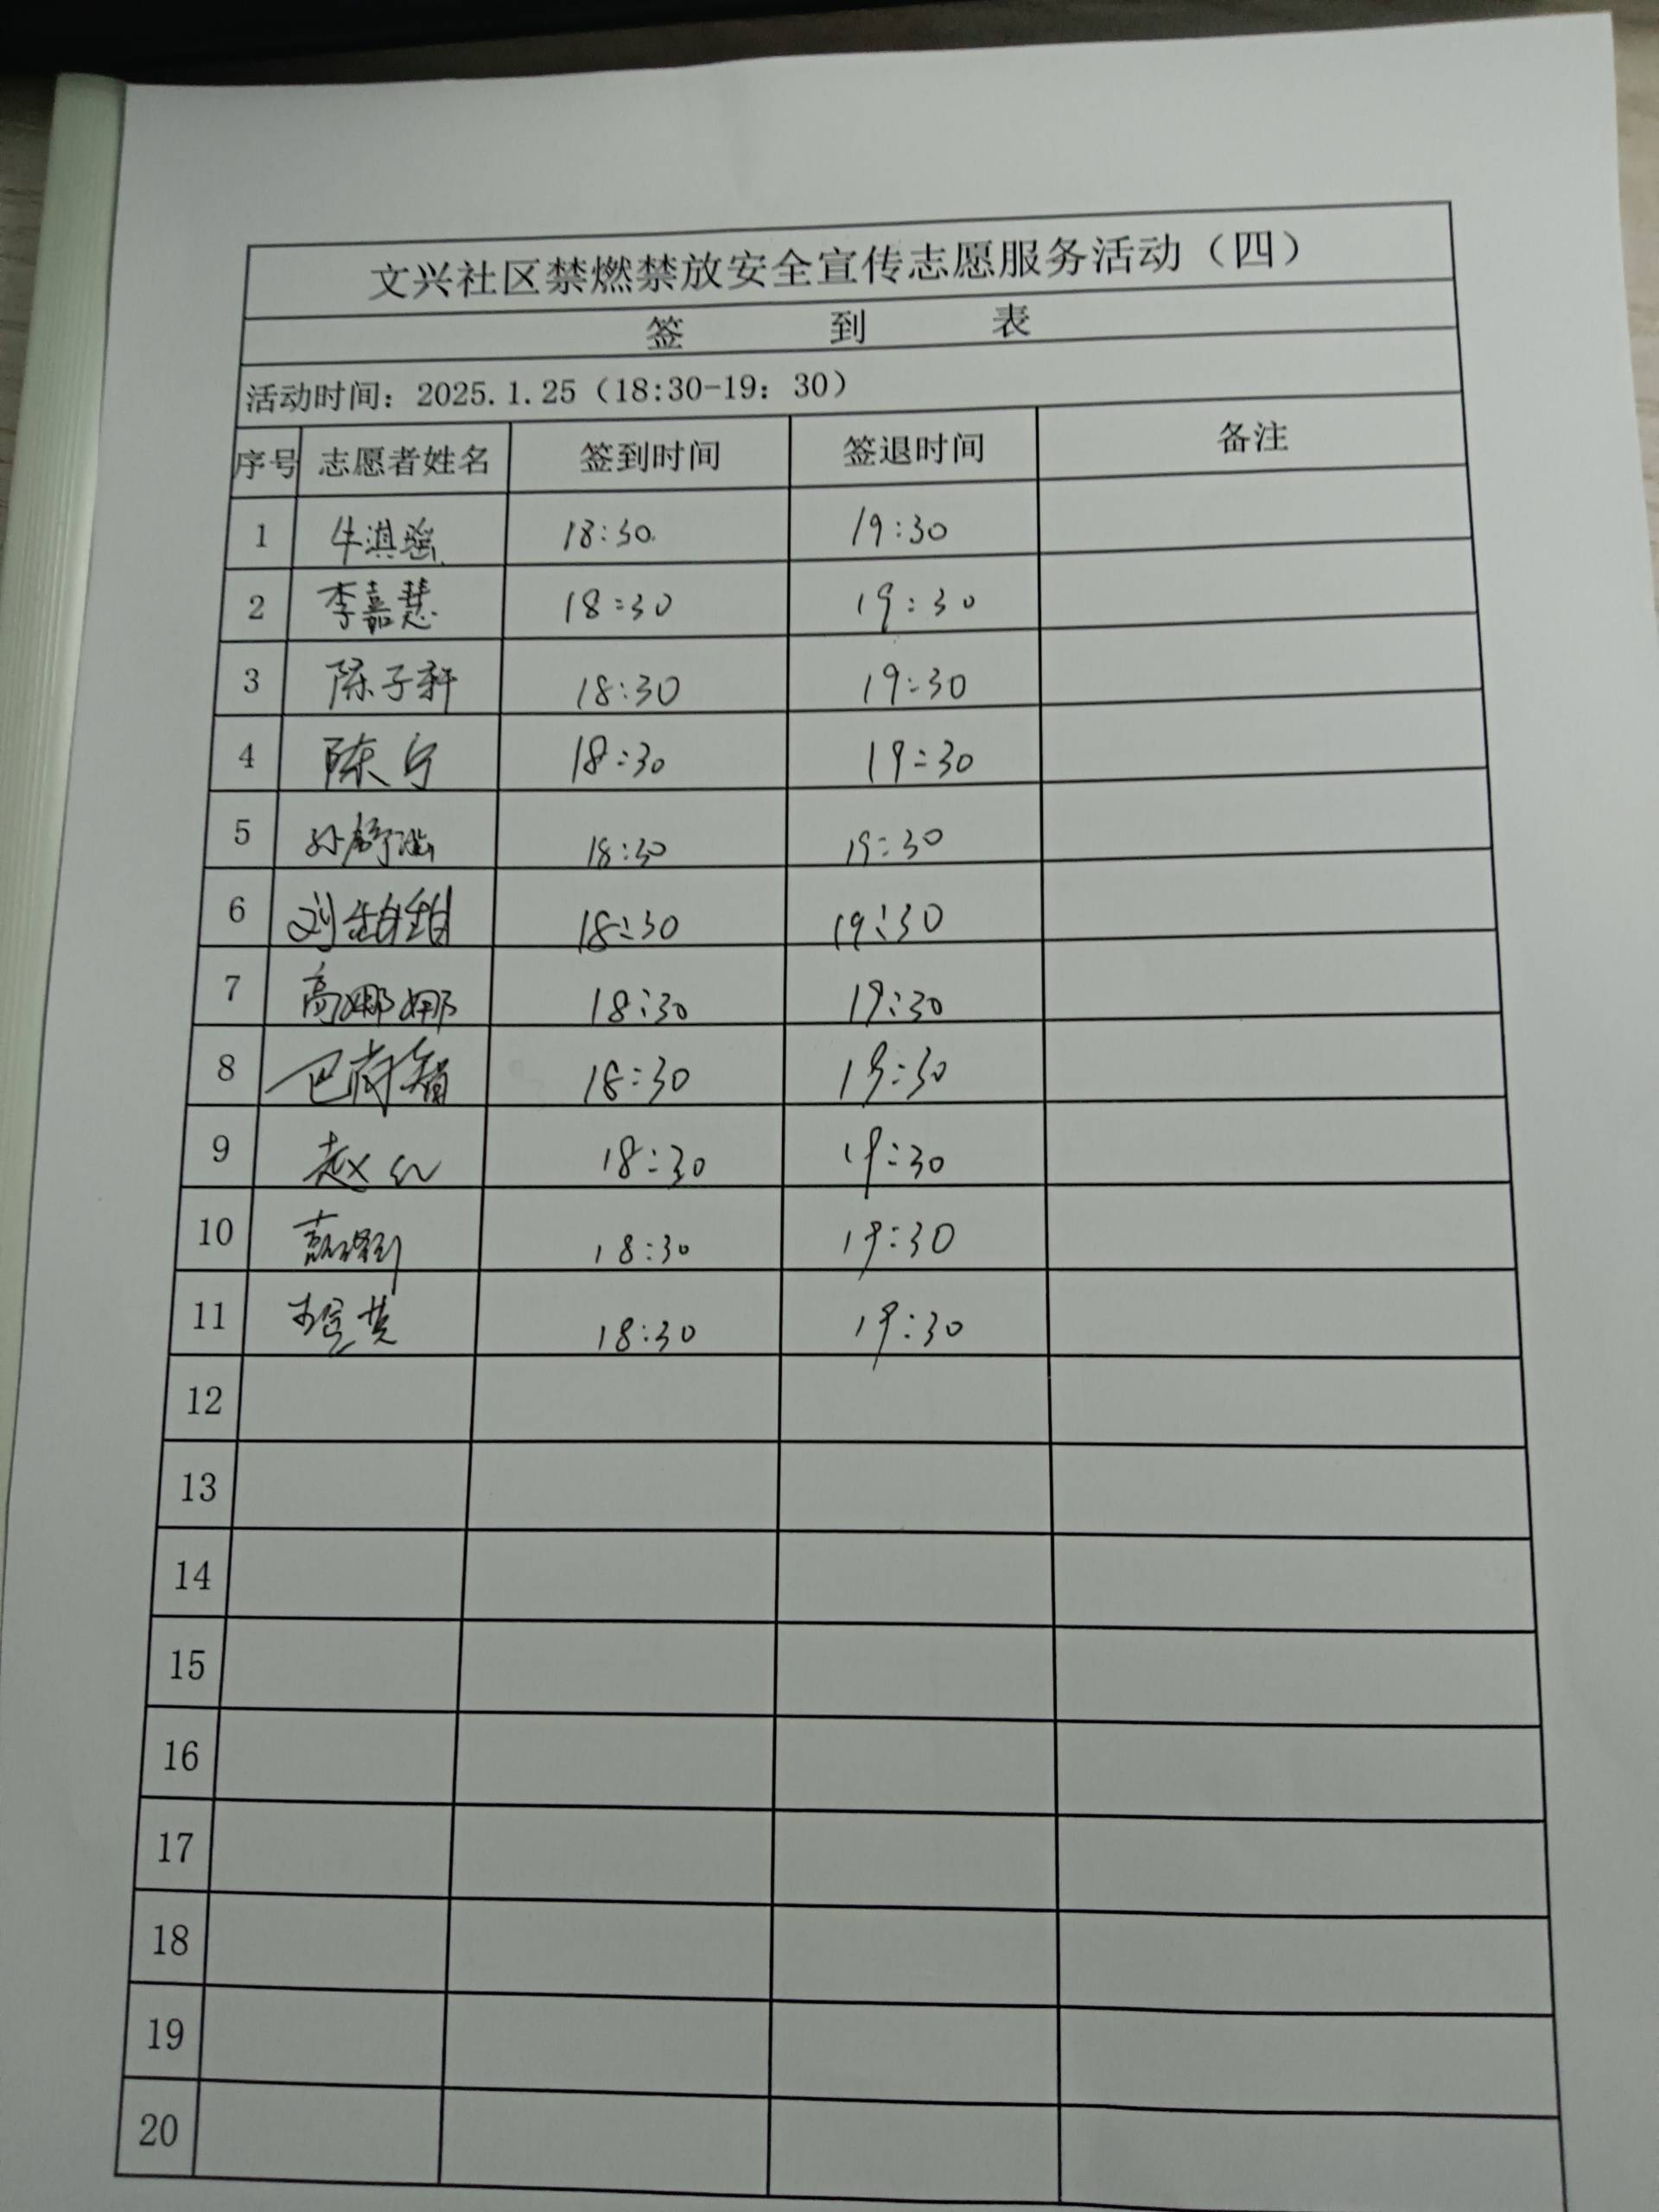 文兴社区禁燃禁放安全宣传志愿服务活动（四）
签 到 表
活动时间：2025.1.25（18:30-19：30）
序号 志愿者姓名 签到时间 签退时间 备注
1 牛淇瑶 18:30 19:30
2 李嘉慧 18:30 19:30
3 陈子轩 18:30 19:30
4 陈宁 18:30 19:30
5 孙舒涵 18:30 19:30
6 刘 18:30 19:30
7 高娜娜 18:30 19:30
8 巴尚智 18:30 19:30
9 赵红 18:30 19:30
10 18:30 19:30
11 18:30 19:30
12
13
14
15
16
17
18
19
20